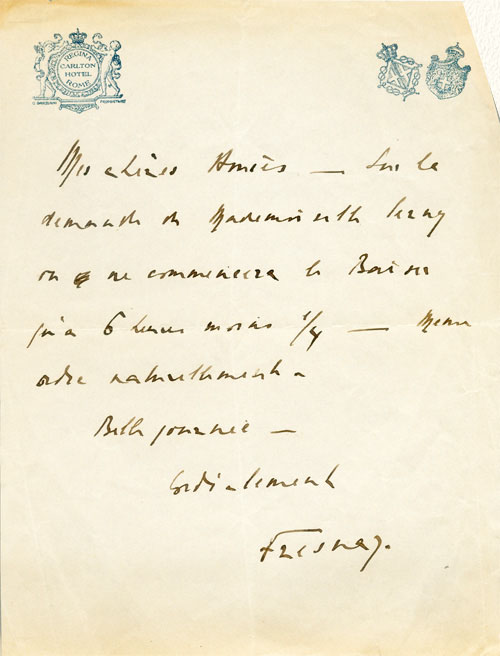 REGINA
CARLTON
HOTEL
ROME
PROPRIETAIRE
Mes chères Amies — Sur la
demande de Mademoiselle Leray
on ne commencera le
qu'à 6 heures moins 1/4 — Meme
ordre naturellement.
Belle journée —
Cordialement
Fresnay.